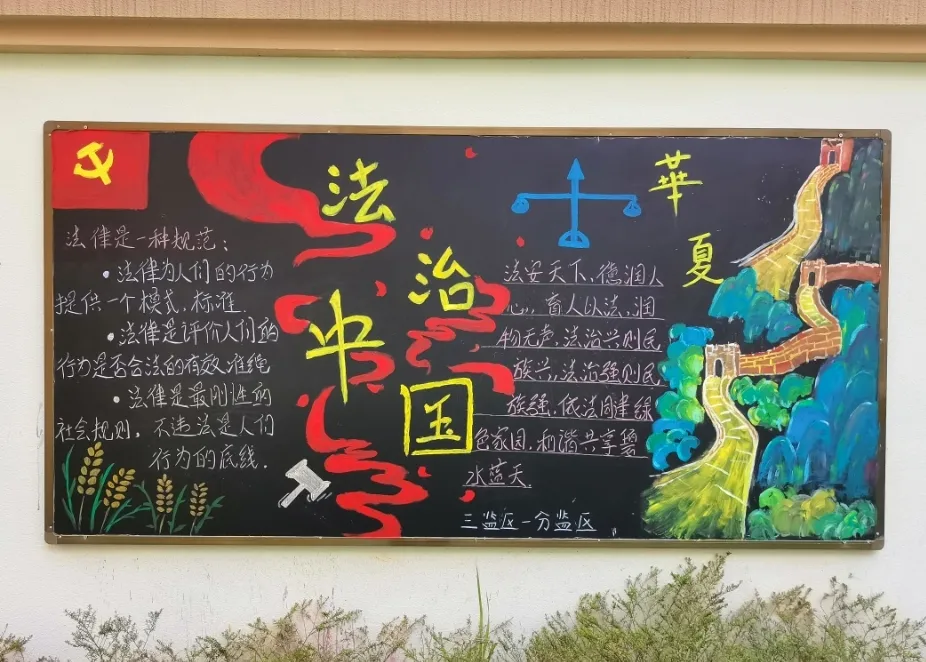 法治中国
華夏
法律是一种规范：
•法律为人们的行为
提供一个模式，标准．
•法律是评价人们的
行为是否合法的有效准绳
•法律是最刚性的
社会规则，不违法是人们
行为的底线．
法安天下，德润人
心，育人以法，润
物无声，法治兴则民
族兴，法治强则民
族强，依法同建绿
色家园，和谐共享碧
水蓝天．
三监区一分监区